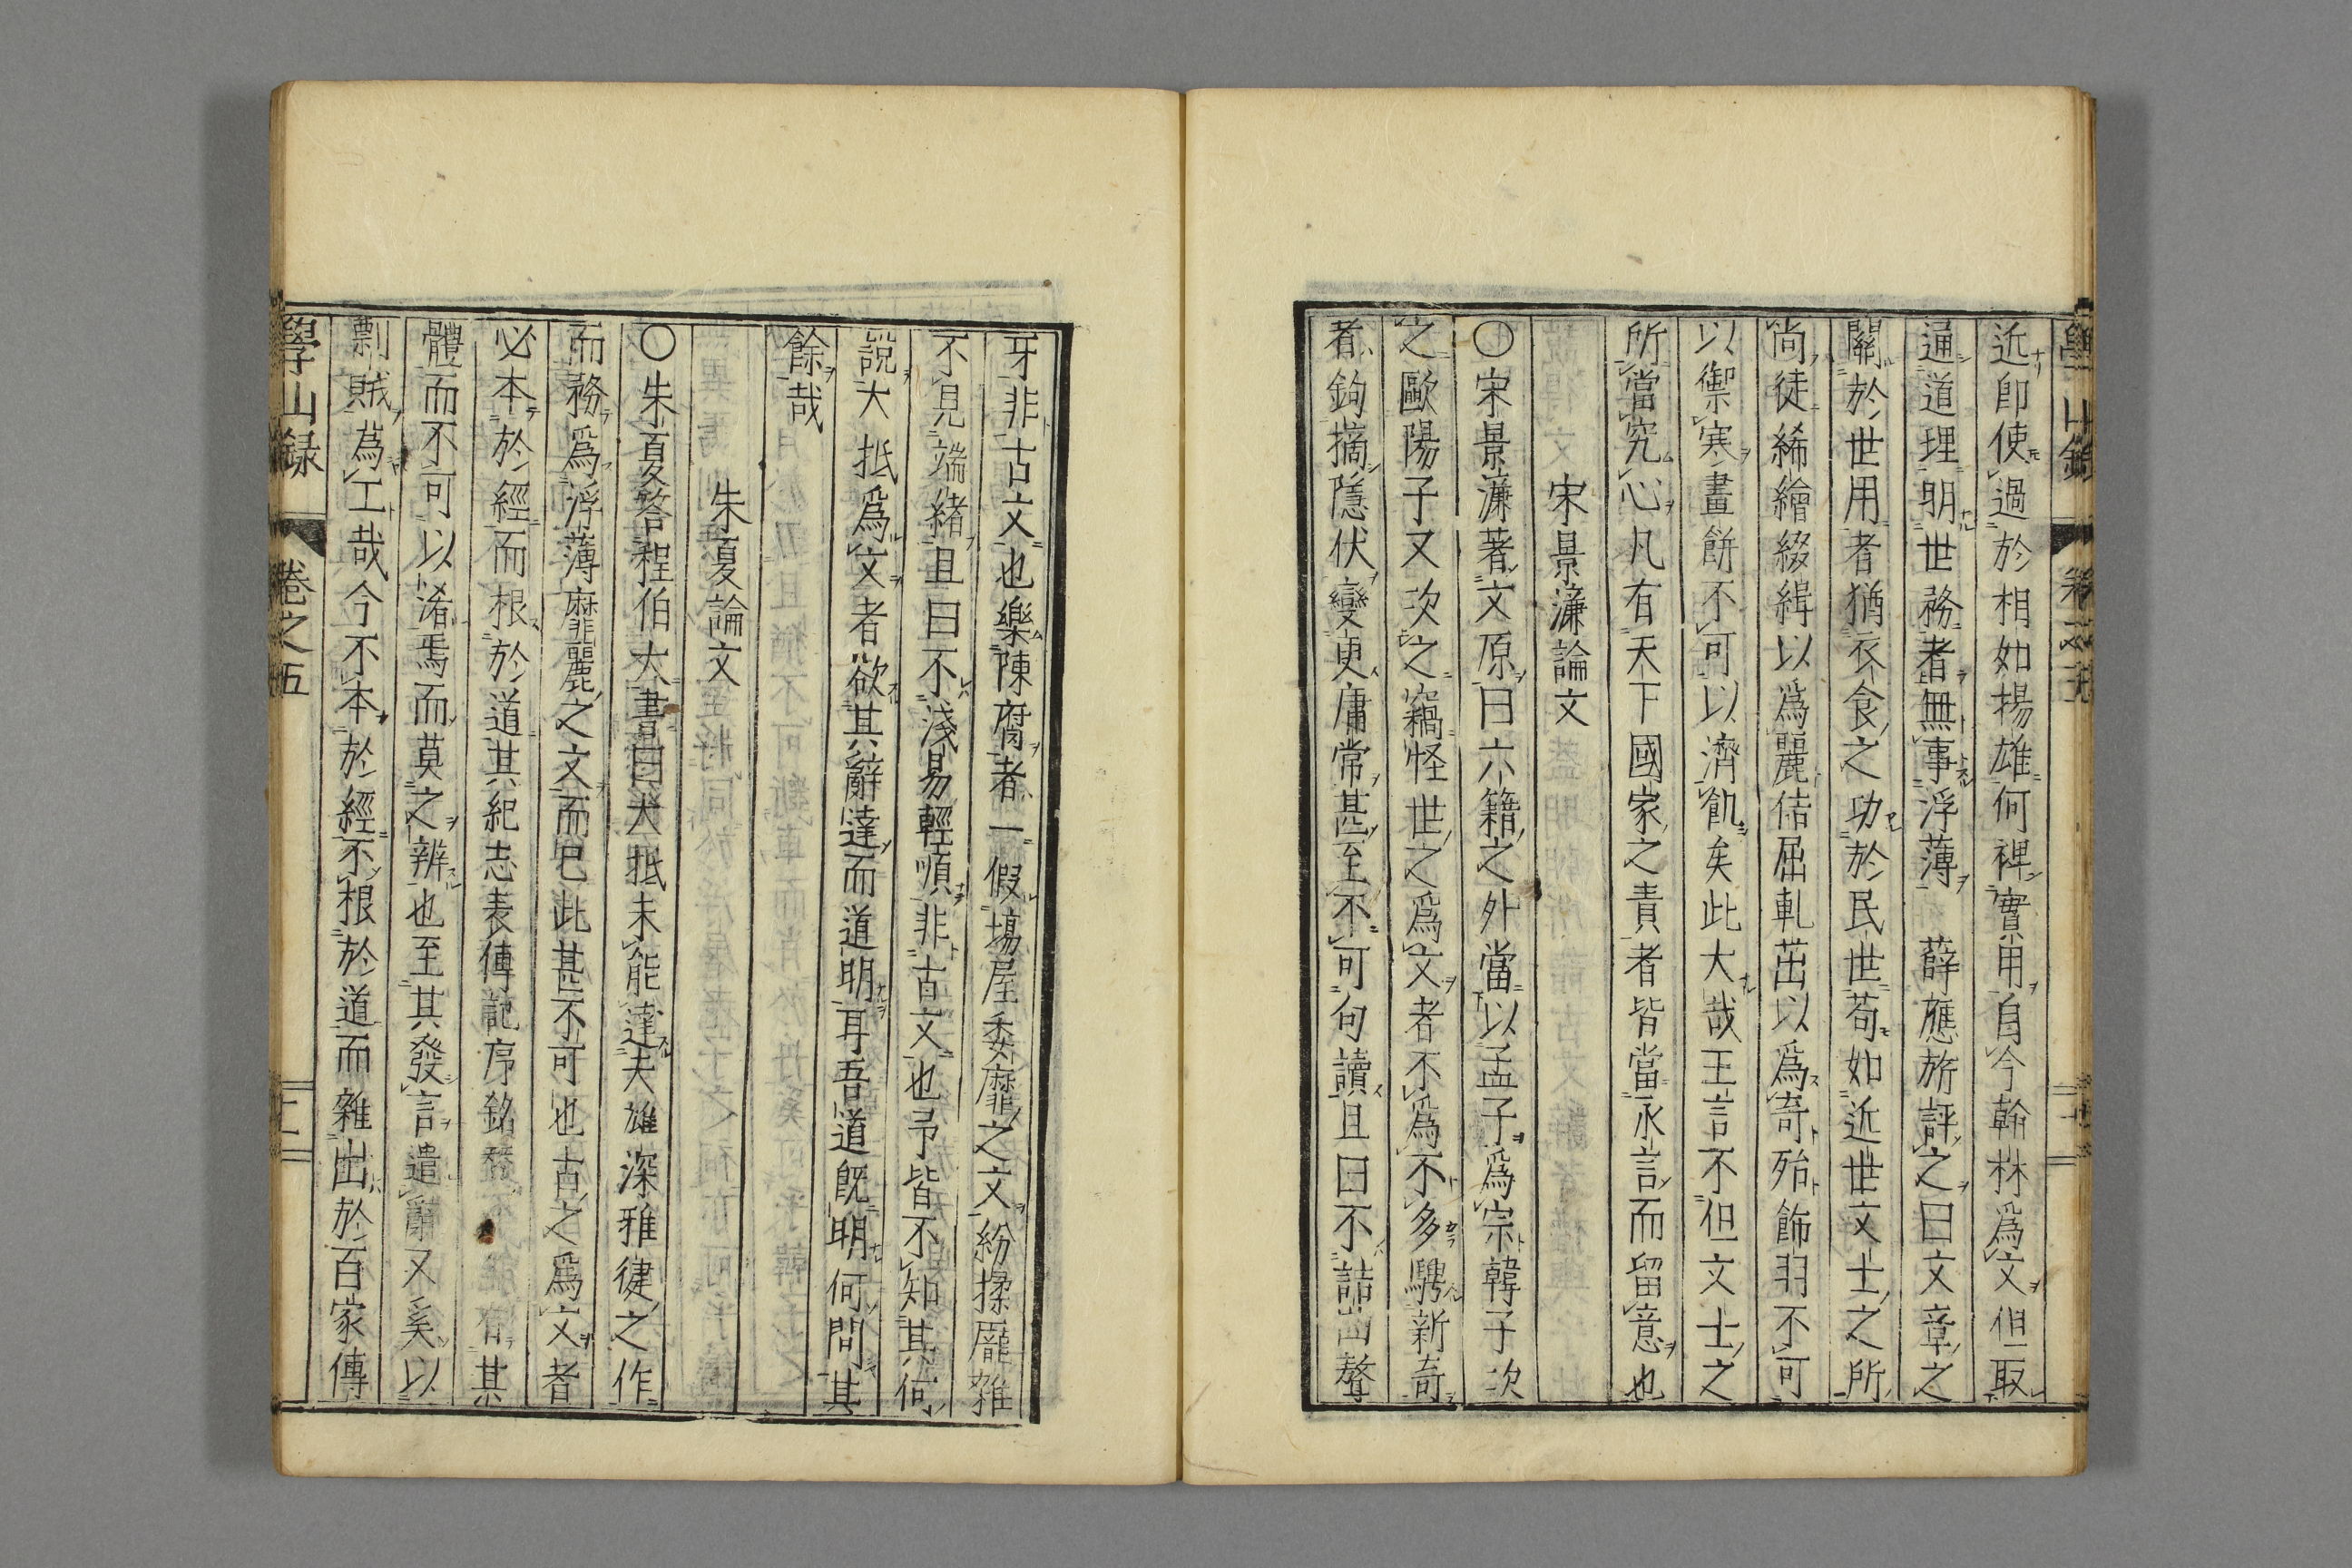 近即使過於相如揚雄何裨實用自今翰林爲文但取
通道理明世務者無事浮薄 薛應旂評之曰文章之
關於世用者猶衣食之功於民世苟如近世文士之所
尚徒絺繪綴緝以爲麗佶屈軋茁以爲奇殆飾羽不可
以禦寒畫餅不可以濟飢矣此大哉王言不但文士之
所當究心凡有天下國家之責者皆當永言而留意也
宋景濂論文
〇宋景濂著文原曰六籍之外當以孟子爲宗韓子次
之歐陽子又次之竊怪世之爲文者不爲不多騁新奇
者鉤摘隱伏變更庸常甚至不可句讀且曰不詰出聱
牙非古文也樂陳腐者一假塲屋委靡之文紛揉龐雜
不見端緒且曰不淺易輕順非古文也予皆不知其何
説大抵爲文者欲其辭達而道明耳吾道既明何問其
餘哉
朱夏論文
〇朱夏答程伯大書曰大抵未能達夫雄深雅健之作
而務爲浮薄靡麗之文而已此甚不可也古之爲文者
必本於經而根於道其紀志表傳記序銘賛 其
體而不可以淆焉而莫之辨也至其發言遣辭又奚以
剽賊爲工哉今不本於經不根於道而雜出於百家傳
學山録 卷之五